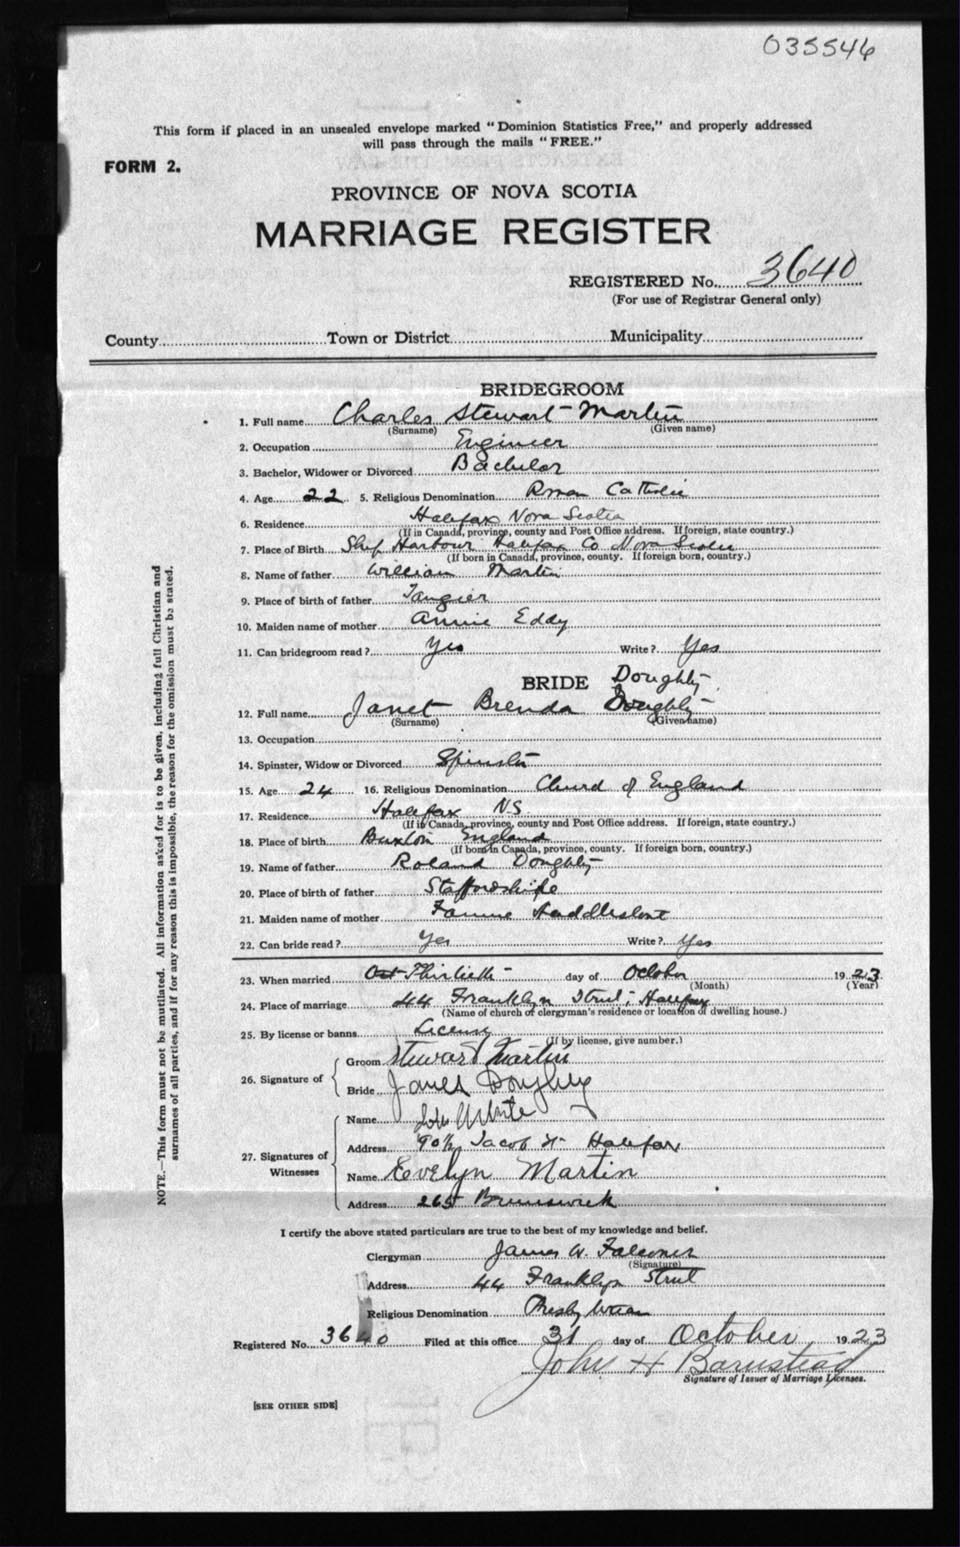 035546
This form if placed in an unsealed envelope marked "Dominion Statistics Free," and properly addressed
will pass through the mails "FREE."
FORM 2.
PROVINCE OF NOVA SCOTIA
MARRIAGE REGISTER
REGISTERED No. 3640
(For use of Registrar General only)
County Town or District Municipality
BRIDEGROOM
1. Full name Charles Stewart Martin
(Surname) (Given name)
2. Occupation Engineer
3. Bachelor, Widower or Divorced Bachelor
4. Age 22 5. Religious Denomination Roman Catholic
6. Residence Halifax Nova Scotia
(If in Canada, province, county and Post Office address. If foreign, state country.)
7. Place of Birth Ship Harbour Halifax Co Nova Scotia
(If born in Canada, province, county. If foreign born, country.)
8. Name of father William Martin
9. Place of birth of father Tangier
10. Maiden name of mother Annie Eddy
11. Can bridegroom read? Yes Write? Yes
BRIDE Doughty
12. Full name Janet Brenda Doughty
(Surname) (Given name)
13. Occupation
14. Spinster, Widow or Divorced Spinster
15. Age 24 16. Religious Denomination Church of England
17. Residence Halifax NS
(If in Canada, province, county and Post Office address. If foreign, state country.)
18. Place of birth Buxton England
(If born in Canada, province, county. If foreign born, country.)
19. Name of father Roland Doughty
20. Place of birth of father Staffordshire
21. Maiden name of mother Fannie
22. Can bride read? Yes Write? Yes
23. When married Oct Thirtieth day of October 1923
(Month) (Year)
24. Place of marriage 44 Franklyn Street, Halifax
(Name of church or clergyman's residence or location of dwelling house.)
25. By license or banns License
(If by license, give number.)
26. Signature of Groom Stewart Martin
Bride Janet Doughty
27. Signatures of Witnesses
Name White
Address 90½ Jacob St Halifax
Name Evelyn Martin
Address 265 Brunswick
I certify the above stated particulars are true to the best of my knowledge and belief.
Clergyman James W. Falconer
(Signature)
Address 44 Franklyn Street
Religious Denomination Presbyterian
Registered No. 3640 Filed at this office 31 day of October 1923
John H Barnstead
Signature of Issuer of Marriage Licenses.
[SEE OTHER SIDE]
NOTE.—This form must not be mutilated. All information asked for is to be given, including full Christian and
surnames of all parties, and if for any reason this is impossible, the reason for the omission must be stated.